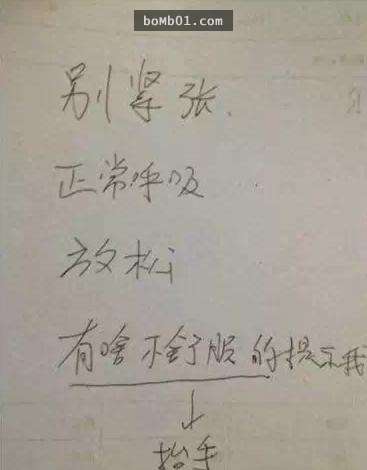 bomb01.com
别紧张.
正常呼吸
放松
有啥不舒服的提示我
↓
抬手